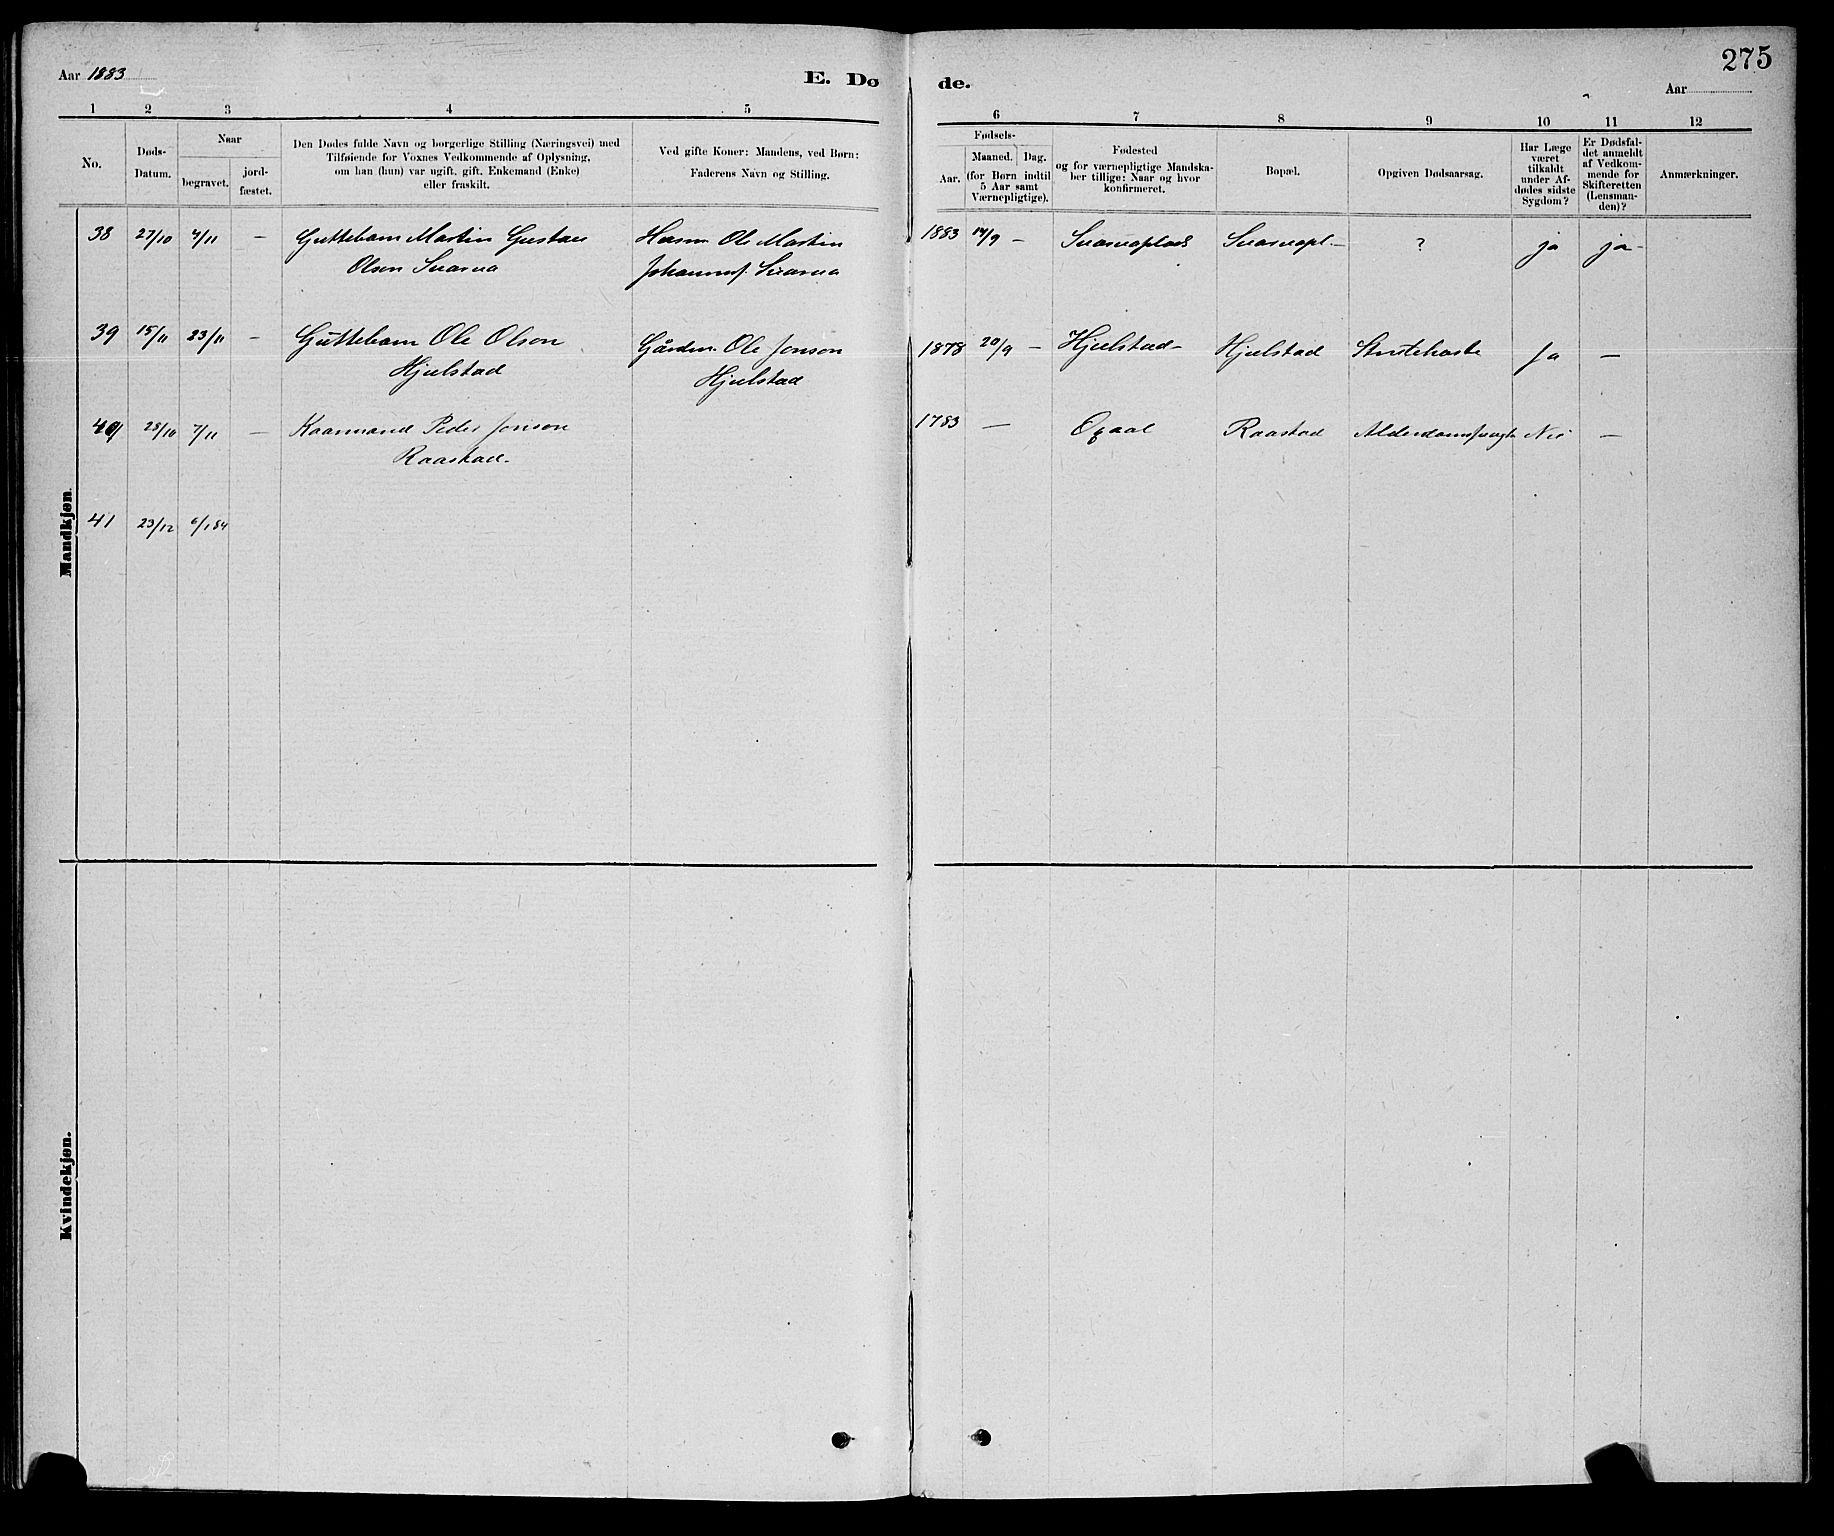 275
Aar 1883
E. Dø
de.
Aar
1 2 3 4 5
6 7 8 9 10 11 12
No.
Døds-
Datum.
Naar
begravet.
jord-
fæstet.
Den Dødes fulde Navn og borgerlige Stilling (Næringsvei) med
Tilføiende for Voxnes Vedkommende af Oplysning,
om han (hun) var ugift, gift, Enkemand (Enke)
eller fraskilt.
Ved gifte Koner: Mandens, ved Børn:
Faderens Navn og Stilling.
Fødsels-
Aar.
Maaned. Dag.
(for Børn indtil
5 Aar samt
Værnepligtige).
Fødested
og for værnepligtige Mandska-
ber tillige: Naar og hvor
konfirmeret.
Bopæl.
Opgiven Dødsaarsag.
Har Læge
været
tilkaldt
under Af-
dødes sidste
Sygdom?
Er Dødsfal-
det anmeldt
af Vedkom-
mende for
Skifteretten
(Lensman-
den)?
Anmærkninger.
Mandkjøn.
38 27/10 4/11 — Guttebarn Martin Gustav Husm. Ole Martin 1883 14/9 — ? ja ja -
Olsen
39 15/11 23/11 — Guttebarn Ole Olson Gårdm. Ole Jonson 1878 20/9 — Hjelstad - Hjelstad Strubehoste Ja —
Hjelstad Hjelstad
40 28/10 7/11 — Kaarmand Peder Jonson 1783 — Opaal Raastad Alderdomssvagh. Nei —
Raastad.
41 23/12 6/1 84
Kvindekjøn.